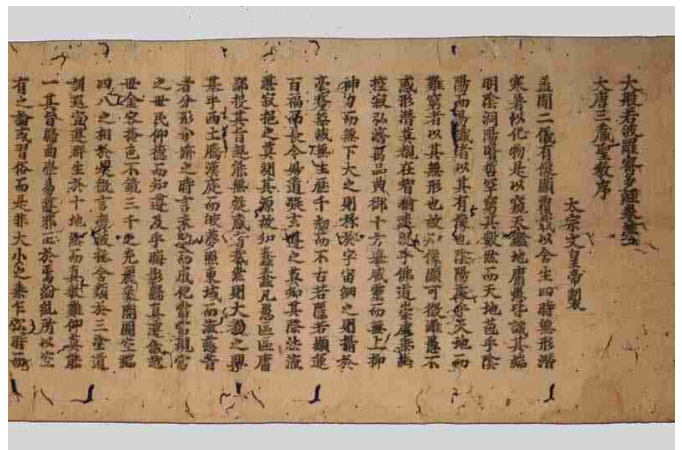 大般若波羅蜜多經卷第一
大唐三藏聖教序
太宗文皇帝製
蓋聞二儀有像顯覆載以含生四時無形潛
寒暑以化物是以窺天鑑地庸愚皆識其端
明陰洞陽賢哲罕窮其數然而天地苞乎陰
陽而易識者以其有像也陰陽處乎天地而
難窮者以其無形也故知像顯可徵雖愚不
惑形潛莫覩在智猶迷況乎佛道崇虛乘幽
控寂弘濟萬品典御十方舉威靈而無上抑
神力而無下大之則彌於宇宙細之則攝於
毫釐無滅無生歷千劫而不古若隱若顯運
百福而長今妙道凝玄遵之莫知其際法流
湛寂挹之莫測其源故知蠢蠢凡愚區區庸
鄙投其旨趣能無疑惑者哉然則大教之興
基乎西土騰漢庭而皎夢照東域而流慈昔
者分形分跡之時言未馳而成化當常現常
之世民仰德而知遵及乎晦影歸真遷儀越
世金容掩色不鏡三千之光麗象開圖空端
四八之相於是微言廣被拯含類於三塗遺
訓遐宣導群生於十地然而真教難仰莫能
一其旨歸曲學易遵邪正於焉紛糺所以空
有之論或習俗而是非大小之乘乍沿時而